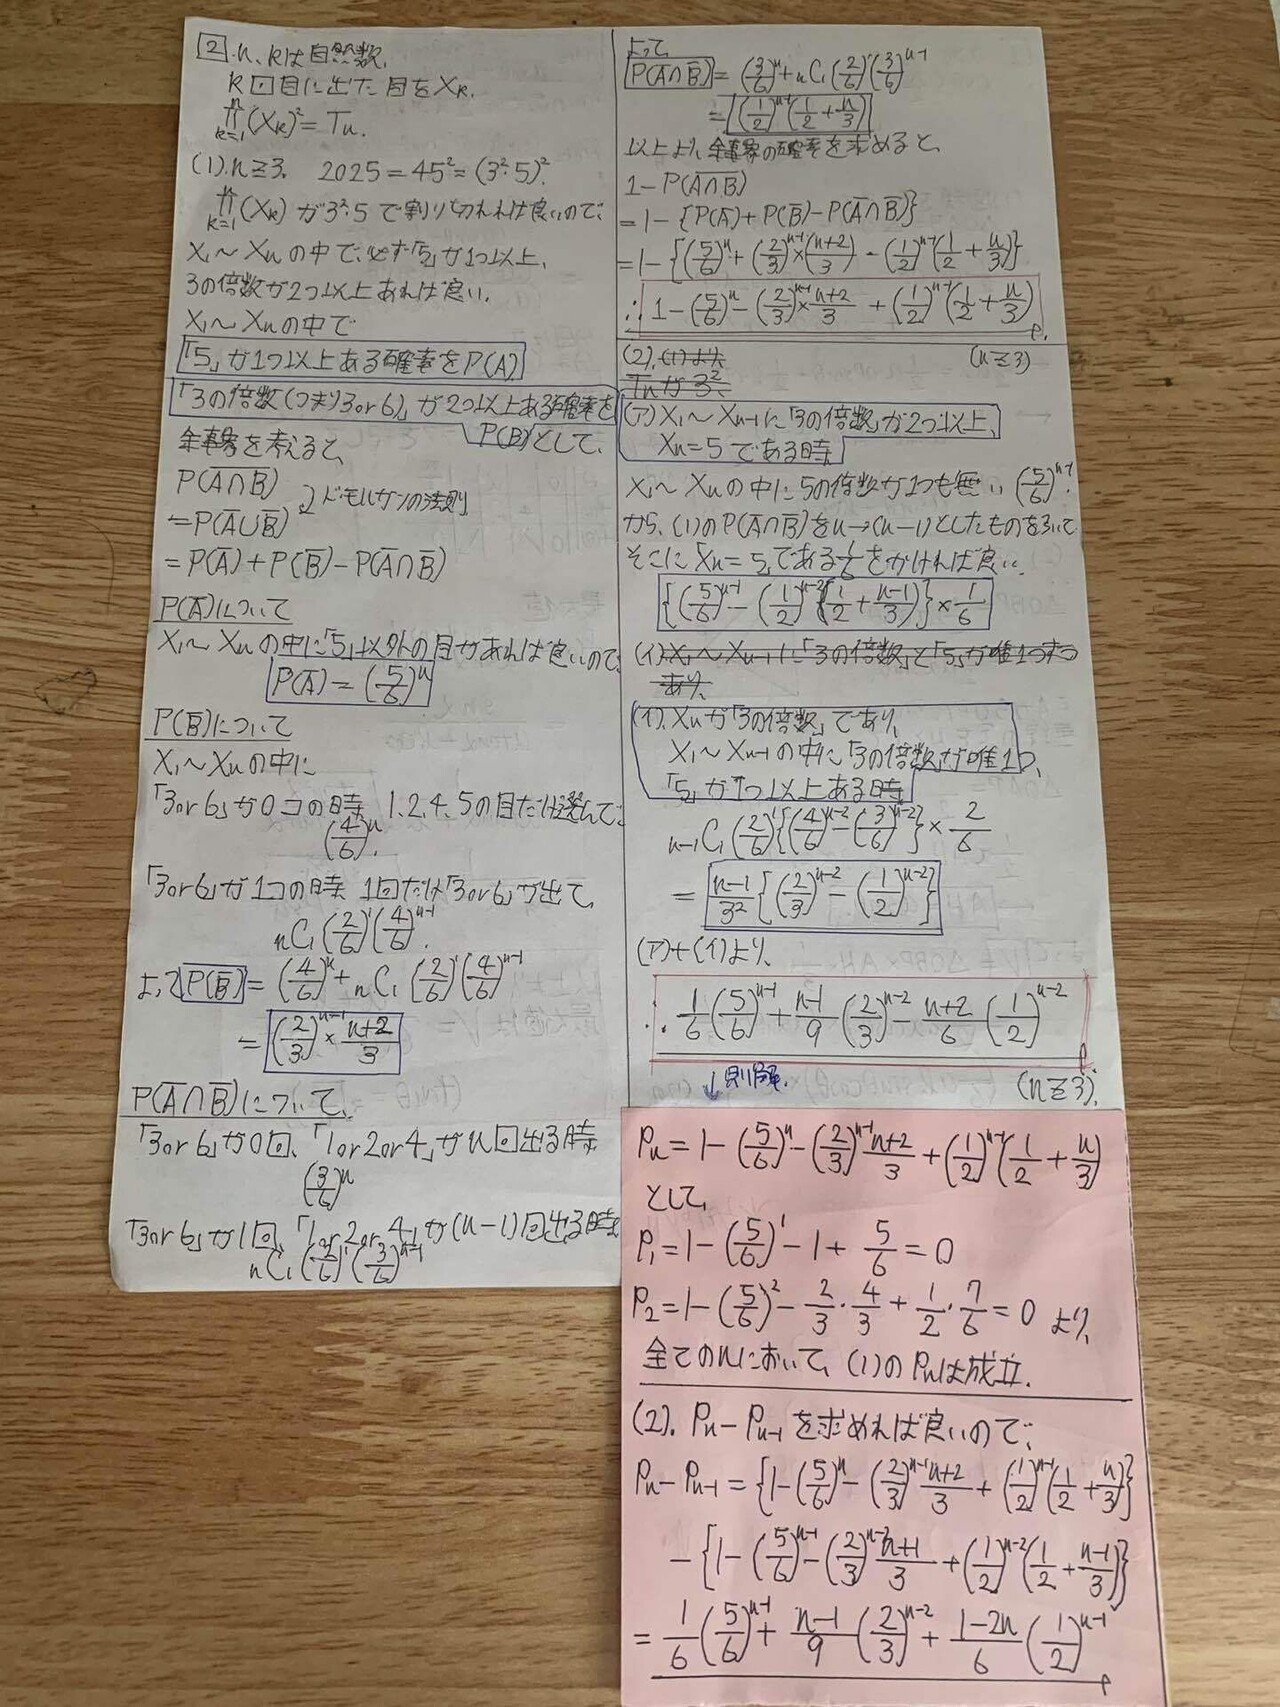 2. n、kは自然数、
k回目に出た目をXk.
n
Π(Xk)²=Tn.
k=1
(1). n≧3. 2025=45²=(3²・5)².
n
Π(Xk)が3²・5で割り切れれば良いので、
k=1
X₁〜Xnの中で、必ず「5」が1つ以上、
3の倍数が2つ以上あれば良い.
X₁〜Xnの中で
「5」が1つ以上ある確率をP(A)
「3の倍数(つまり3or6)」が2つ以上ある確率を
P(B)として、
余事象を考えると、
P(\overline{A∩B})
=P(\overline{A}∪\overline{B}) ド・モルガンの法則
=P(\overline{A})+P(\overline{B})-P(\overline{A}∩\overline{B})
P(\overline{A})について
X₁〜Xnの中に「5」以外の目があれば良いので、
P(\overline{A})=(5/6)^n
P(\overline{B})について
X₁〜Xnの中に
「3or6」が0コの時 1,2,4,5の目だけ選んで、
(4/6)^n.
「3or6」が1コの時 1回だけ「3or6」が出て、
nC₁(2/6)^1(4/6)^{n-1}.
よってP(\overline{B})=(4/6)^n+nC₁(2/6)^1(4/6)^{n-1}
=(2/3)^{n-1}×(n+2)/3
P(\overline{A}∩\overline{B})について、
「3or6」が0回、「1or2or4」がn回出る時
(3/6)^n
「3or6」が1回、「1or2or4」が(n-1)回出る時
nC₁(2/6)^1(3/6)^{n-1}
よって、
P(\overline{A}∩\overline{B})=(3/6)^n+nC₁(2/6)^1(3/6)^{n-1}
=(1/2)^{n-1}(1/2+n/3)
以上より、余事象の確率を求めると、
1-P(\overline{A∩B})
=1-{P(\overline{A})+P(\overline{B})-P(\overline{A}∩\overline{B})}
=1-{(5/6)^n+(2/3)^{n-1}×(n+2)/3-(1/2)^{n-1}(1/2+n/3)}
∴1-(5/6)^n-(2/3)^{n-1}×(n+2)/3+(1/2)^{n-1}(1/2+n/3)
(2). (1)より、 (n≧3)
Tnが3²、
(ア) X₁〜Xn-1に「3の倍数」が2つ以上、
Xn=5である時
X₁〜Xnの中に5の倍数が1つも無い(5/6)^{n-1}
から、(1)のP(\overline{A}∩\overline{B})をn→(n-1)としたものを引いて
そこに「Xn=5」である1/6をかければ良い.
{(5/6)^{n-1}-(1/2)^{n-2}(1/2+(n-1)/3)}×1/6
(イ). X₁〜Xn-1に「3の倍数」と「5」が唯1つずつ
あり、
(イ). Xnが「3の倍数」であり、
X₁〜Xn-1の中に「3の倍数」が唯1つ、
「5」が1つ以上ある時
n-1C₁(2/6)^1{(4/6)^{n-2}-(3/6)^{n-2}}×2/6
=(n-1)/3²{(2/3)^{n-2}-(1/2)^{n-2}}
(ア)+(イ)より、
∴1/6(5/6)^{n-1}+(n-1)/9(2/3)^{n-2}-(n+2)/6(1/2)^{n-2}
↓別解. (n≧3).
Pn=1-(5/6)^n-(2/3)^{n-1}(n+2)/3+(1/2)^{n-1}(1/2+n/3)
として、
P₁=1-(5/6)^1-1+5/6=0
P₂=1-(5/6)²-2/3・4/3+1/2・7/6=0 より、
全てのnにおいて、(1)のPnは成立.
(2). Pn-Pn-1を求めれば良いので、
Pn-Pn-1={1-(5/6)^n-(2/3)^{n-1}(n+2)/3+(1/2)^{n-1}(1/2+n/3)}
-{1-(5/6)^{n-1}-(2/3)^{n-2}(n+1)/3+(1/2)^{n-2}(1/2+(n-1)/3)}
=1/6(5/6)^{n-1}+(n-1)/9(2/3)^{n-2}+(1-2n)/6(1/2)^{n-1}